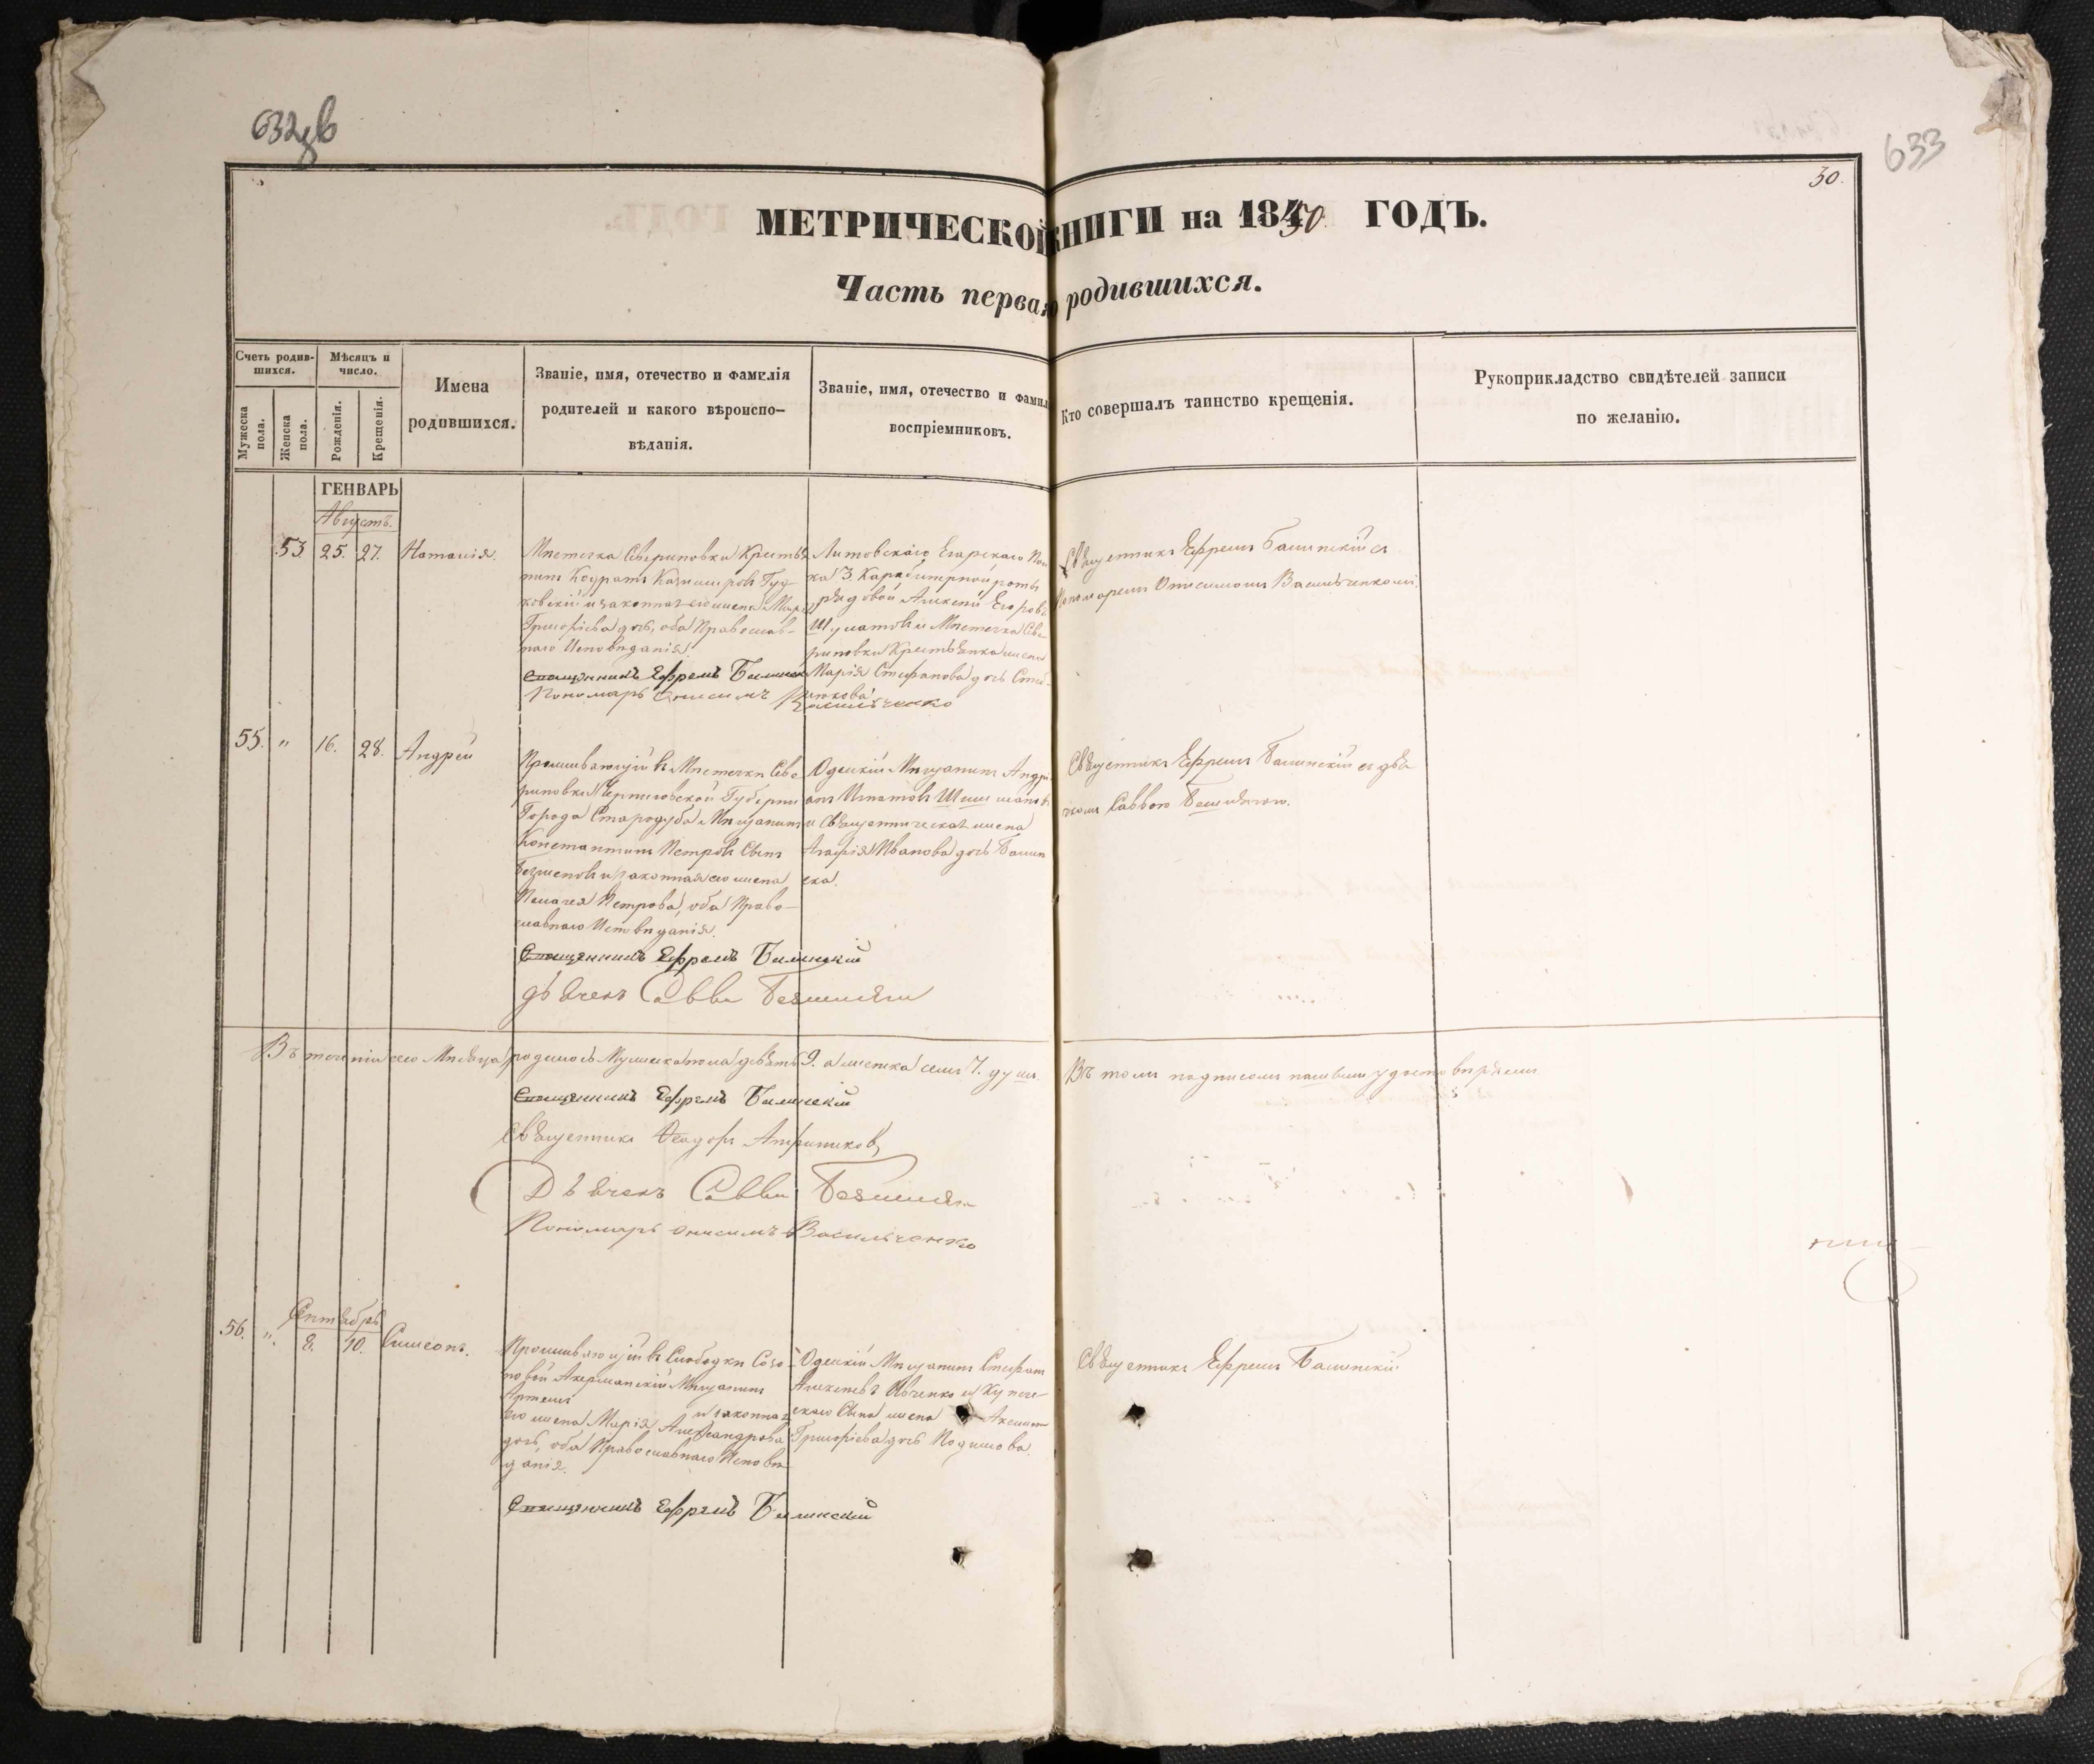 632 об
633
30.
МЕТРИЧЕСКОЙ КНИГИ на 1850 ГОДЪ.
Часть первая о родившихся.
Счетъ родив-
шихся.
Мужеска
пола.
Женска
пола.
Мѣсяцъ и
число.
Рожденія.
Крещенія.
Имена
родившихся.
Званіе, имя, отечество и фамилія
родителей и какого вѣроиспо-
вѣданія.
Званіе, имя, отечество и фамил
воспріемниковъ.
Кто совершалъ таинство крещенія.
Рукоприкладство свидѣтелей записи
по желанію.
ГЕНВАРЬ
Августъ.
53 25. 27. Наталія.
Мѣстечка Севериновки Крестья
нинъ Кодратъ Казимировъ Гуд-
ковскій и законная его жена Марія
Григорьева дочь, оба Православ-
наго Исповѣданія.
Священникъ Ефремъ Балинскій
Пономарь Онисимъ Васильченко
Литовскаго Егарскаго Пол
ка 3. Карабинерной роты
рядовой Алексѣй Егоровъ
Шулатовъ и Мѣстечка Све
риновки Крестьянка жена
Марія Стефанова дочь
Священникъ Ефремъ Балинскій съ
Пономаремъ Онисимомъ Васильченкомъ.
55. " 16. 28. Андрей
Проживающій въ Мѣстечкѣ Севе
риновкѣ Черниговской Губерніи
Города Стародуба Мѣщанинъ
Константинъ Петровъ Сынъ
и законная его жена
Пелагея Петрова, оба Право-
славнаго Исповѣданія.
Священникъ Ефремъ Балинскій
дьячекъ Савва
Одескій Мѣщанинъ Андрі-
анъ Игнатовъ Шишмановъ
и Священническая жена
Агафія Иванова дочь Балин
ска.
Священникъ Ефремъ Балинскій съ дья
чкомъ Саввою
Въ теченіи сего Мѣсяца родилось Мужеска пола девять 9. а женска семь 7. душъ.
Въ томъ подписомъ нашимъ удостовѣряемъ
Священникъ Ефремъ Балинскій
Священникъ Феодоръ
Дьячекъ Савва
Пономарь Онисимъ Васильченко
Септябрь
56. ". 8. 10. Симеонъ.
Проживающій въ Слободки Созо-
новой Акерманскій Мѣщанинъ
Артемъ
и законная
его жена Марія Александрова
дочь, оба Православнаго Исповѣ
данія.
Священникъ Ефремъ Балинскій
Одескій Мѣщанинъ Стефанъ
Алексѣевъ Ивченко и Купече-
скаго Сына жена
Григорьева дочь Подимова.
Священникъ Ефремъ Балинскій